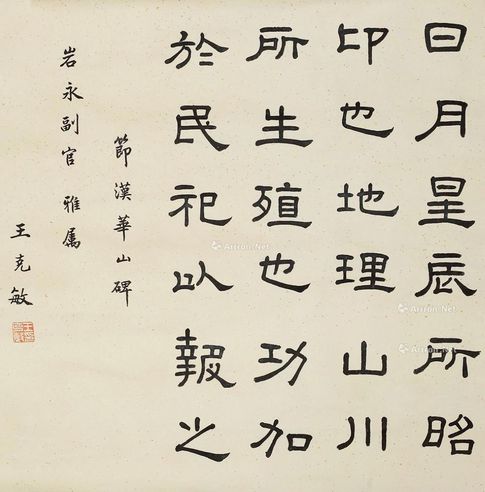 日月星辰所昭
印也地理山川
所生殖也功加
於民祀以報之
節漢華山碑
岩永副官 雅属
王克敏
Artron.Net
Artron.Net
Artron.Net